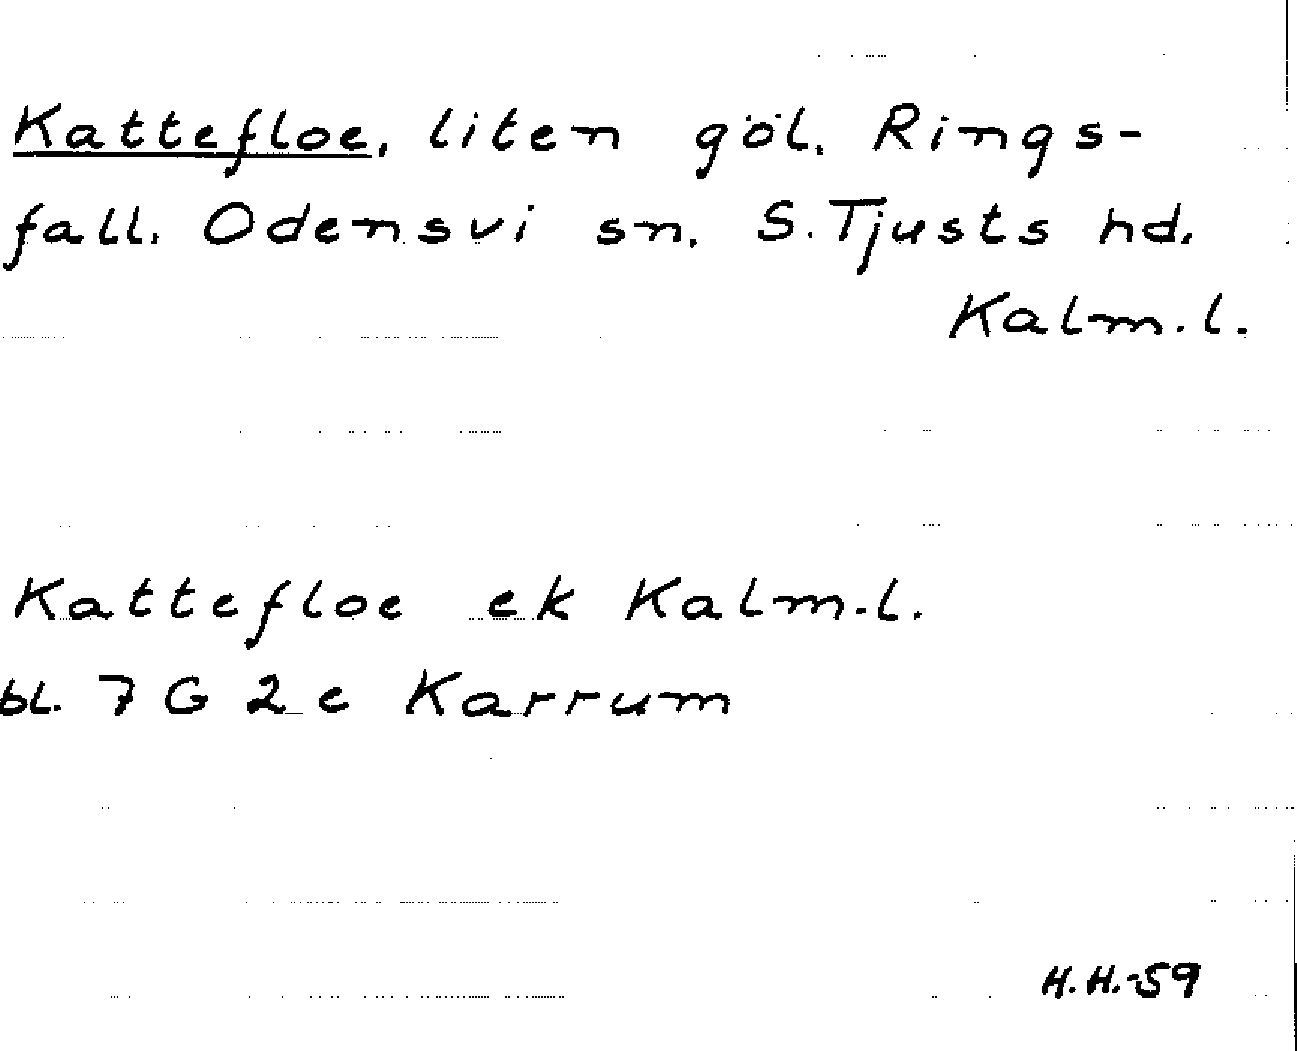 Kattefloe, liten göl. Rings-
fall. Odensvi sn. S. Tjusts hd.
Kalm.l.
Kattefloe ek Kalm.l.
bl. 7 G 2 e Karrum
H.H.-59